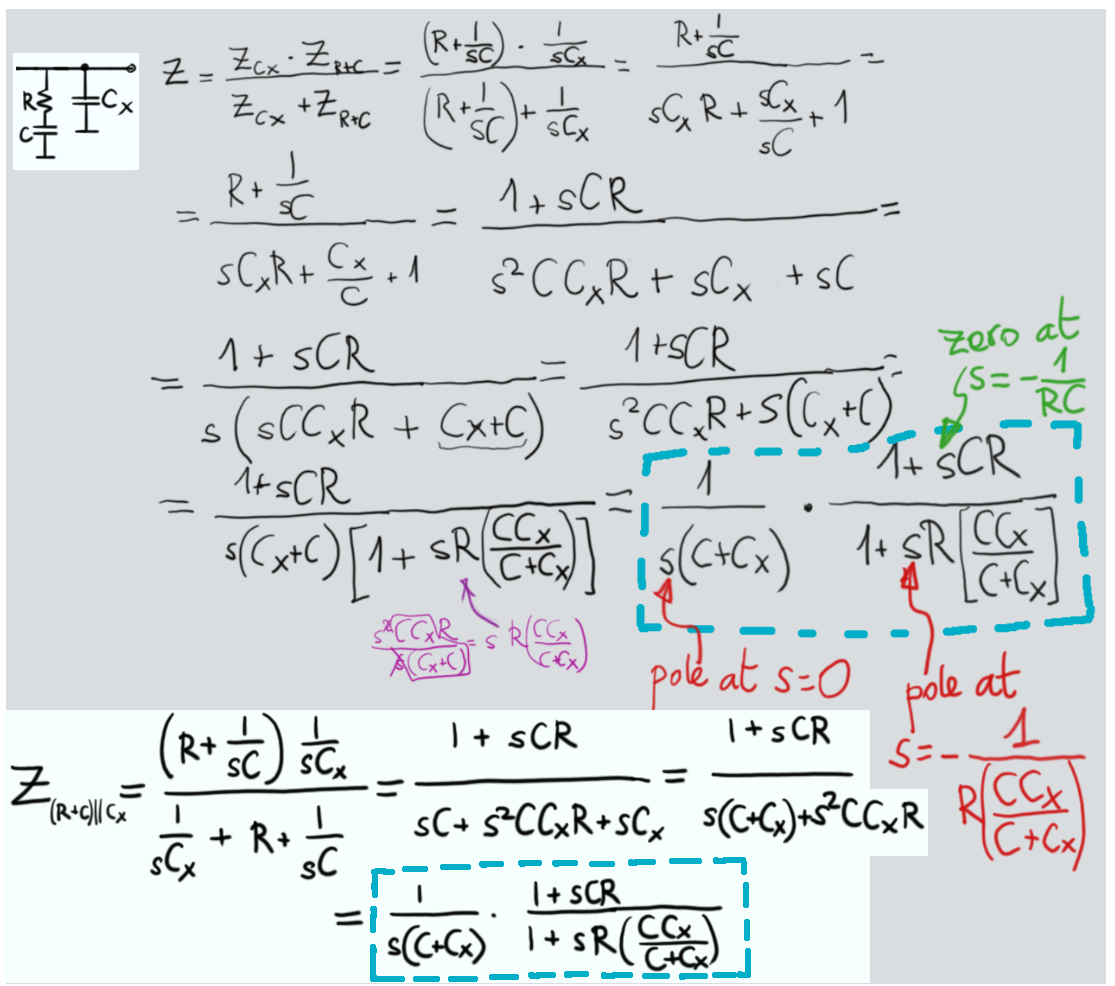 R C Cx
Z = (Z_Cx · Z_R+C)/(Z_Cx + Z_R+C) = ((R+1/sC) · 1/sCx)/((R+1/sC)+1/sCx) = (R+1/sC)/(sCxR + sCx/sC + 1) =
= (R+1/sC)/(sCxR + Cx/C + 1) = (1+sCR)/(s²CCxR + sCx + sC) =
= (1+sCR)/(s(sCCxR + Cx+C)) = (1+sCR)/(s²CCxR+S(Cx+C)) =
zero at
s=-1/RC
= (1+sCR)/(s(Cx+C)[1+sR(CCx/(C+Cx))]) = 1/(s(C+Cx)) · (1+sCR)/(1+sR[CCx/(C+Cx)])
s²CCxR/(s(Cx+C)) = s R(CCx/(C+Cx))
pole at s=0
pole at
s=-1/(R(CCx/(C+Cx)))
Z_(R+C)||Cx = ((R+1/sC) 1/sCx)/(1/sCx + R + 1/sC) = (1+sCR)/(sC+s²CCxR+sCx) = (1+sCR)/(s(C+Cx)+s²CCxR)
= 1/(s(C+Cx)) · (1+sCR)/(1+sR(CCx/(C+Cx)))